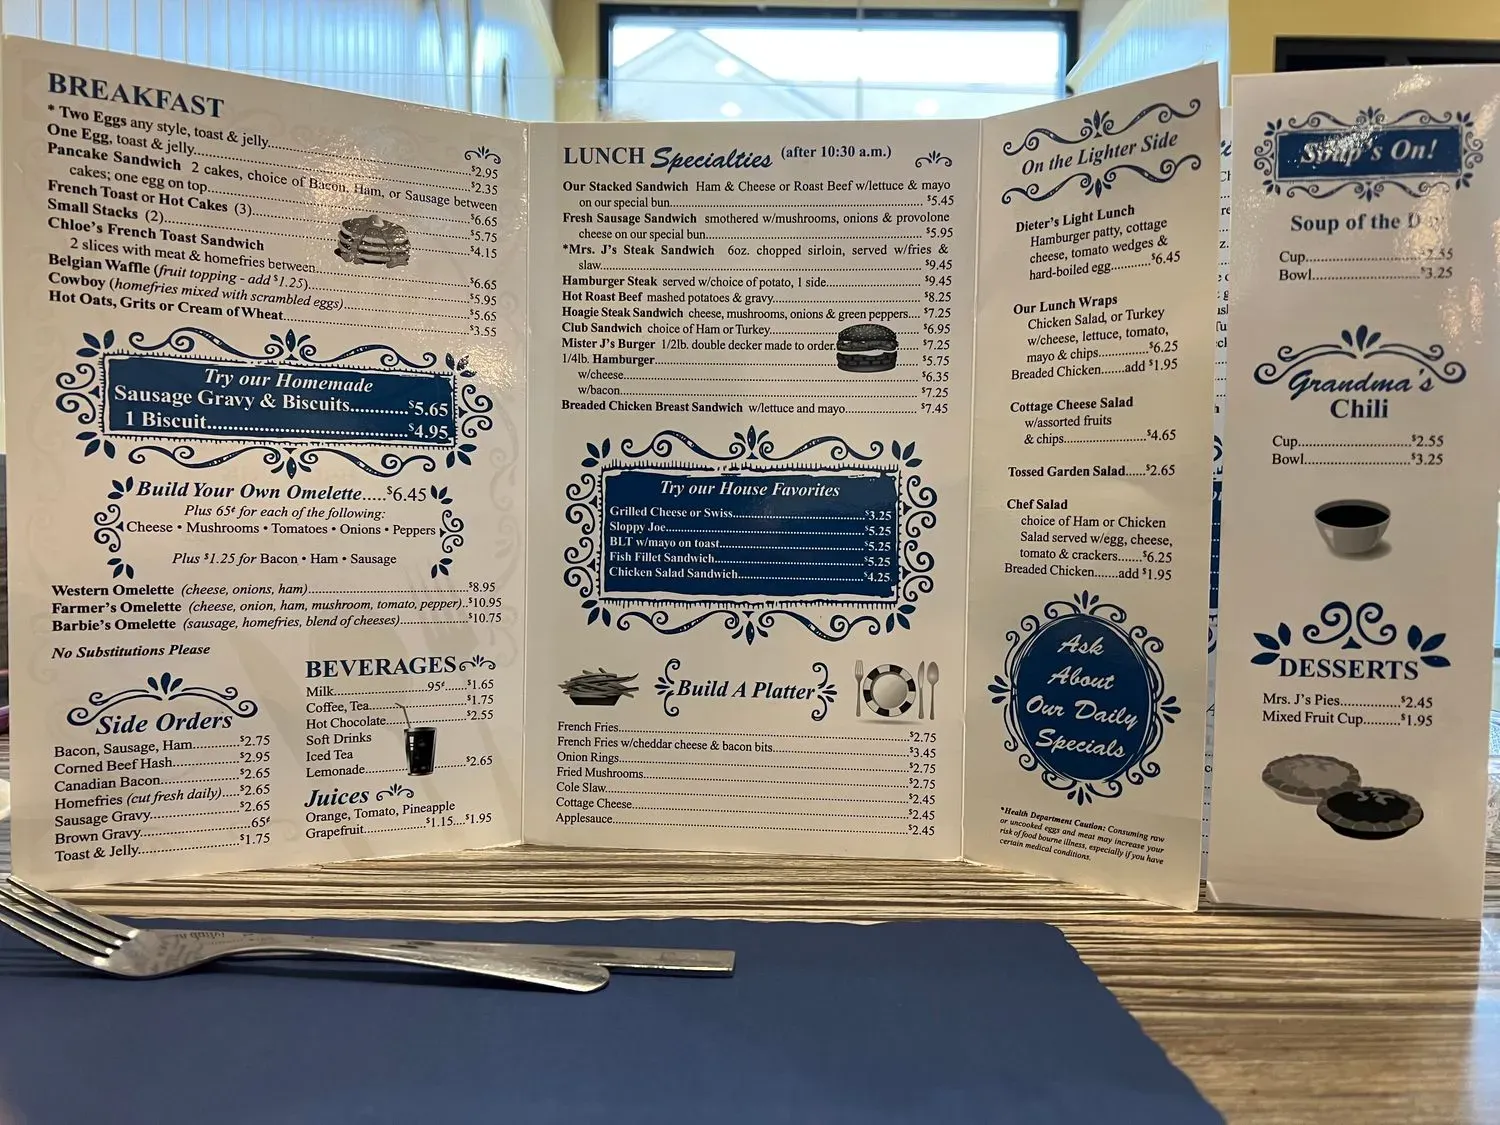 BREAKFAST
* Two Eggs any style, toast & jelly $2.95
One Egg, toast & jelly $2.35
Pancake Sandwich 2 cakes, choice of Bacon, Ham, or Sausage between
cakes; one egg on top $6.65
French Toast or Hot Cakes (3) $5.75
Small Stacks (2) $4.15
Chloe's French Toast Sandwich
2 slices with meat & homefries between $6.65
Belgian Waffle (fruit topping - add $1.25) $5.95
Cowboy (homefries mixed with scrambled eggs) $5.65
Hot Oats, Grits or Cream of Wheat $3.55
Try our Homemade
Sausage Gravy & Biscuits $5.65
1 Biscuit $4.95
Build Your Own Omelette.....$6.45
Plus 65¢ for each of the following:
Cheese • Mushrooms • Tomatoes • Onions • Peppers
Plus $1.25 for Bacon • Ham • Sausage
Western Omelette (cheese, onions, ham) $8.95
Farmer's Omelette (cheese, onion, ham, mushroom, tomato, pepper)..$10.95
Barbie's Omelette (sausage, homefries, blend of cheeses) $10.75
No Substitutions Please
Side Orders
Bacon, Sausage, Ham $2.75
Corned Beef Hash $2.95
Canadian Bacon $2.65
Homefries (cut fresh daily) $2.65
Sausage Gravy $2.65
Brown Gravy .65¢
Toast & Jelly $1.75
BEVERAGES
Milk .95¢ $1.65
Coffee, Tea $1.75
Hot Chocolate $2.55
Soft Drinks
Iced Tea
Lemonade $2.65
Juices
Orange, Tomato, Pineapple
Grapefruit $1.15....$1.95
LUNCH Specialties (after 10:30 a.m.)
Our Stacked Sandwich Ham & Cheese or Roast Beef w/lettuce & mayo
on our special bun $5.45
Fresh Sausage Sandwich smothered w/mushrooms, onions & provolone
cheese on our special bun $5.95
*Mrs. J's Steak Sandwich 6oz. chopped sirloin, served w/fries &
slaw $9.45
Hamburger Steak served w/choice of potato, 1 side $9.45
Hot Roast Beef mashed potatoes & gravy $8.25
Hoagie Steak Sandwich cheese, mushrooms, onions & green peppers.... $7.25
Club Sandwich choice of Ham or Turkey $6.95
Mister J's Burger 1/2lb. double decker made to order $7.25
1/4lb. Hamburger $5.75
w/cheese $6.35
w/bacon $7.25
Breaded Chicken Breast Sandwich w/lettuce and mayo $7.45
Try our House Favorites
Grilled Cheese or Swiss $3.25
Sloppy Joe $5.25
BLT w/mayo on toast $5.25
Fish Fillet Sandwich $5.25
Chicken Salad Sandwich $4.25
Build A Platter
French Fries $2.75
French Fries w/cheddar cheese & bacon bits $3.45
Onion Rings $2.75
Fried Mushrooms $2.75
Cole Slaw $2.45
Cottage Cheese $2.45
Applesauce $2.45
On the Lighter Side
Dieter's Light Lunch
Hamburger patty, cottage
cheese, tomato wedges &
hard-boiled egg $6.45
Our Lunch Wraps
Chicken Salad, or Turkey
w/cheese, lettuce, tomato,
mayo & chips $6.25
Breaded Chicken.......add $1.95
Cottage Cheese Salad
w/assorted fruits
& chips $4.65
Tossed Garden Salad......$2.65
Chef Salad
choice of Ham or Chicken
Salad served w/egg, cheese,
tomato & crackers.......$6.25
Breaded Chicken.......add $1.95
Ask
About
Our Daily
Specials
*Health Department Caution: Consuming raw
or uncooked eggs and meat may increase your
risk of food bourne illness, especially if you have
certain medical conditions.
Soup's On!
Soup of the Day
Cup $2.55
Bowl $3.25
Grandma's
Chili
Cup $2.55
Bowl $3.25
DESSERTS
Mrs. J's Pies $2.45
Mixed Fruit Cup $1.95